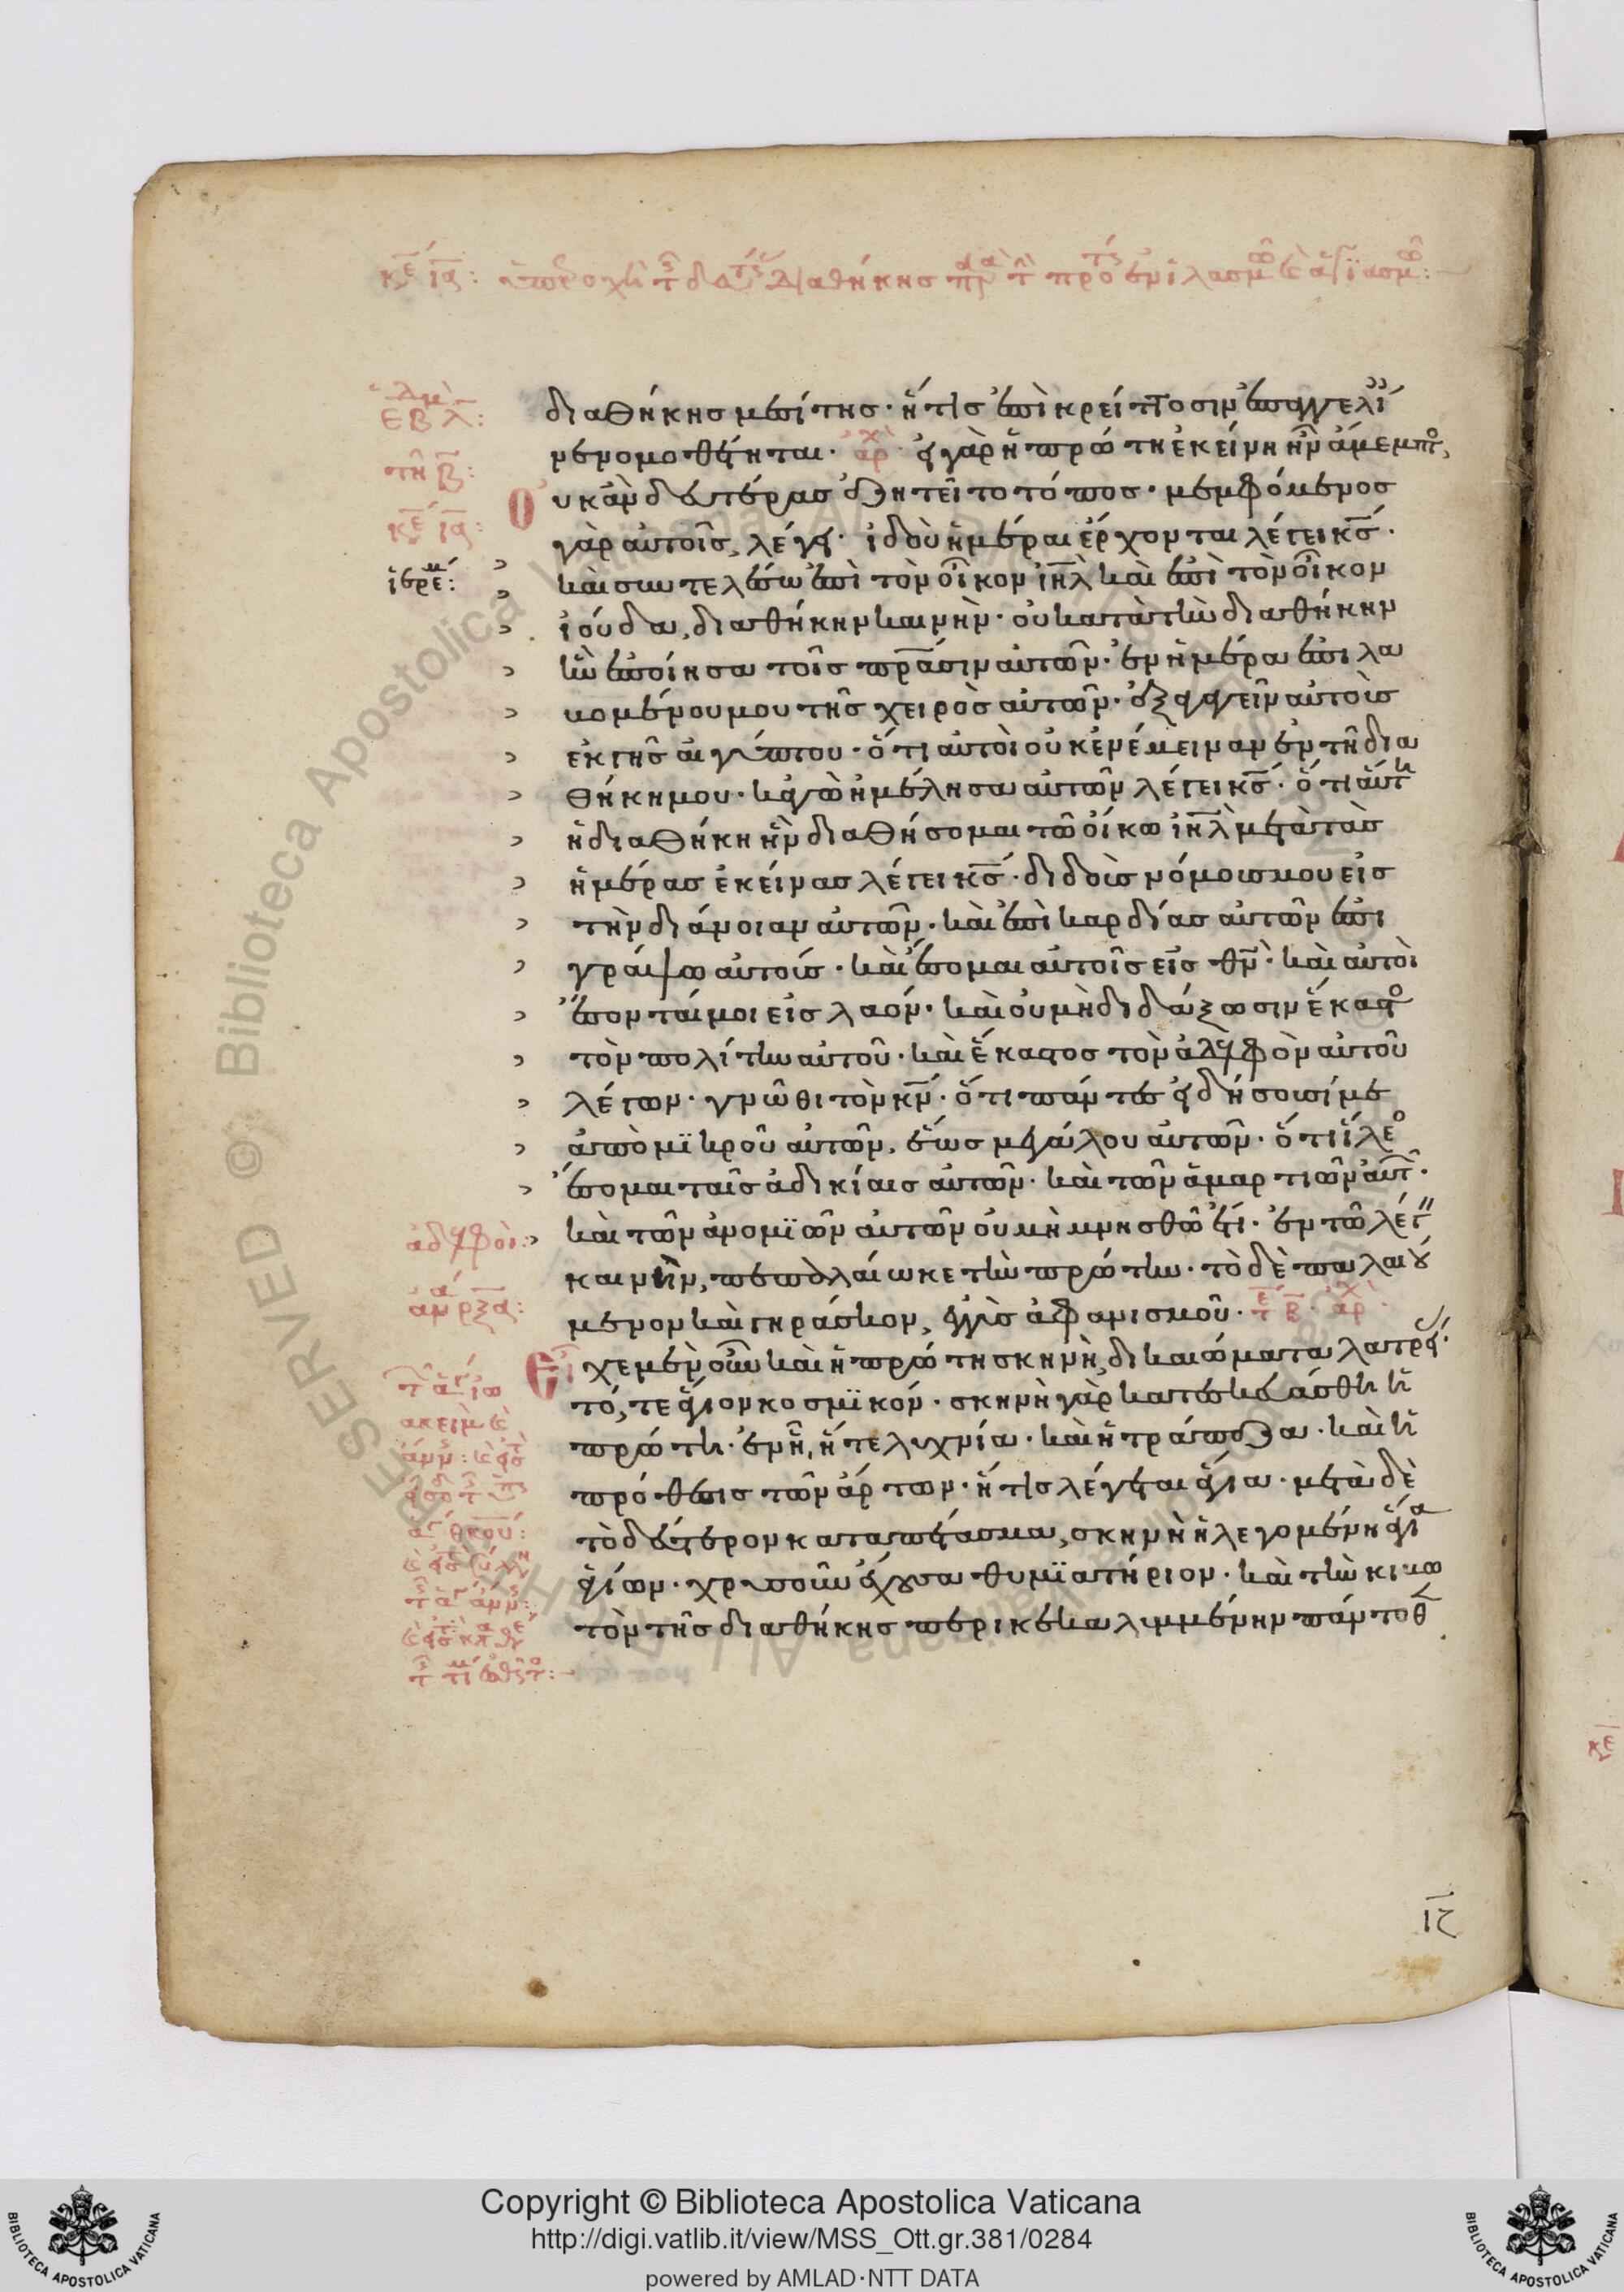 διαθήκης μεσίτης· ἥτις ἐπὶ κρείττοσιν ἐπαγγελί
νενομοθέτηται· ἀρχ εἰ γὰρ ἡ πρώτη ἐκείνη ἦν ἄμεμπτο,
Οὐκ ἂν δευτέρας ἐζητεῖτο τόπος· μεμφόμενος
γὰρ αὐτοῖς, λέγει· ἰδοὺ ἡμέραι ἔρχονται λέγει κς·
καὶ συντελέσω ἐπὶ τὸν οἶκον ιηλ καὶ ἐπὶ τὸν οἶκον
ἰούδα, διαθήκην καινὴν· οὐ κατὰ τὴν διαθήκην
ἣν ἐποίησα τοῖς πράσιν αὐτῶν· ἐν ἡμέρα ἐπιλα
βομένου μου τῆς χειρὸς αὐτῶν· ἐξαγαγεῖν αὐτοὺς
ἐκ γῆς αἰγύπτου· ὅτι αὐτοὶ οὐκ ἐνέμειναν ἐν τῆ δια
θήκη μου· κἀγὼ ἠμέλησα αὐτῶν λέγει κς· ὅτι αὕτη
ἡ διαθήκη ἣν διαθήσομαι τῶ οἴκω ιηλ μετὰ τὰς
ἡμέρας ἐκείνας λέγει κς· διδοὺς νόμους μου εἰς
τὴν διάνοιαν αὐτῶν· καὶ ἐπὶ καρδίας αὐτῶν ἐπι
γράψω αὐτούς· καὶ ἔσομαι αὐτοῖς εἰς θν· καὶ αὐτοὶ
ἔσονταί μοι εἰς λαόν· καὶ οὐ μὴ διδάξωσιν ἕκαστο
τὸν πολίτην αὐτοῦ· καὶ ἕκαστος τὸν ἀδελφὸν αὐτοῦ
λέγων· γνῶθι τὸν κν· ὅτι πάντες εἰδήσουσί με
ἀπὸ μϊκροῦ αὐτῶν, ἕως μεγάλου αὐτῶν· ὅτι ἵλεο
ἔσομαι ταῖς ἀδικίαις αὐτῶν· καὶ τῶν ἁμαρτιῶν αὐτ·
καὶ τῶν ἀνομϊῶν αὐτῶν οὐ μὴ μνησθῶ ἔτι· ἐν τῶ λέγ
καινὴν, πεπαλαίωκε τὴν πρώτην· τὸ δὲ παλαιού
μενον καὶ γηράσκον, ἐγγὺς ἀφανισμοῦ· τε β· ἀρχ·
Εἶχε μὲν οὖν καὶ ἡ πρώτη σκηνὴ, δικαιώματα λατρεί·
τό, τε ἅγιον κοσμϊκόν· σκηνὴ γὰρ κατεσκευάσθη ἡ
πρώτη· ἐν ἧ, ἥ τε λυχνία· καὶ ἡ τράπεζα· καὶ ἡ
πρόθεσις τῶν ἄρτων· ἥτις λέγεται ἅγια· μετὰ δὲ
τὸ δεύτερον καταπέτασμα, σκηνὴ ἡ λεγομένη ἅγια
ἁγίων· χρυσοῦν ἔχουσα θυμϊατήριον· καὶ τὴν κιβω
τὸν τῆς διαθήκης περικεκαλυμμένην πάντοθ
ἀδελφοὶ:
ιζ
Copyright © Biblioteca Apostolica Vaticana
http://digi.vatlib.it/view/MSS_Ott.gr.381/0284
powered by AMLAD·NTT DATA